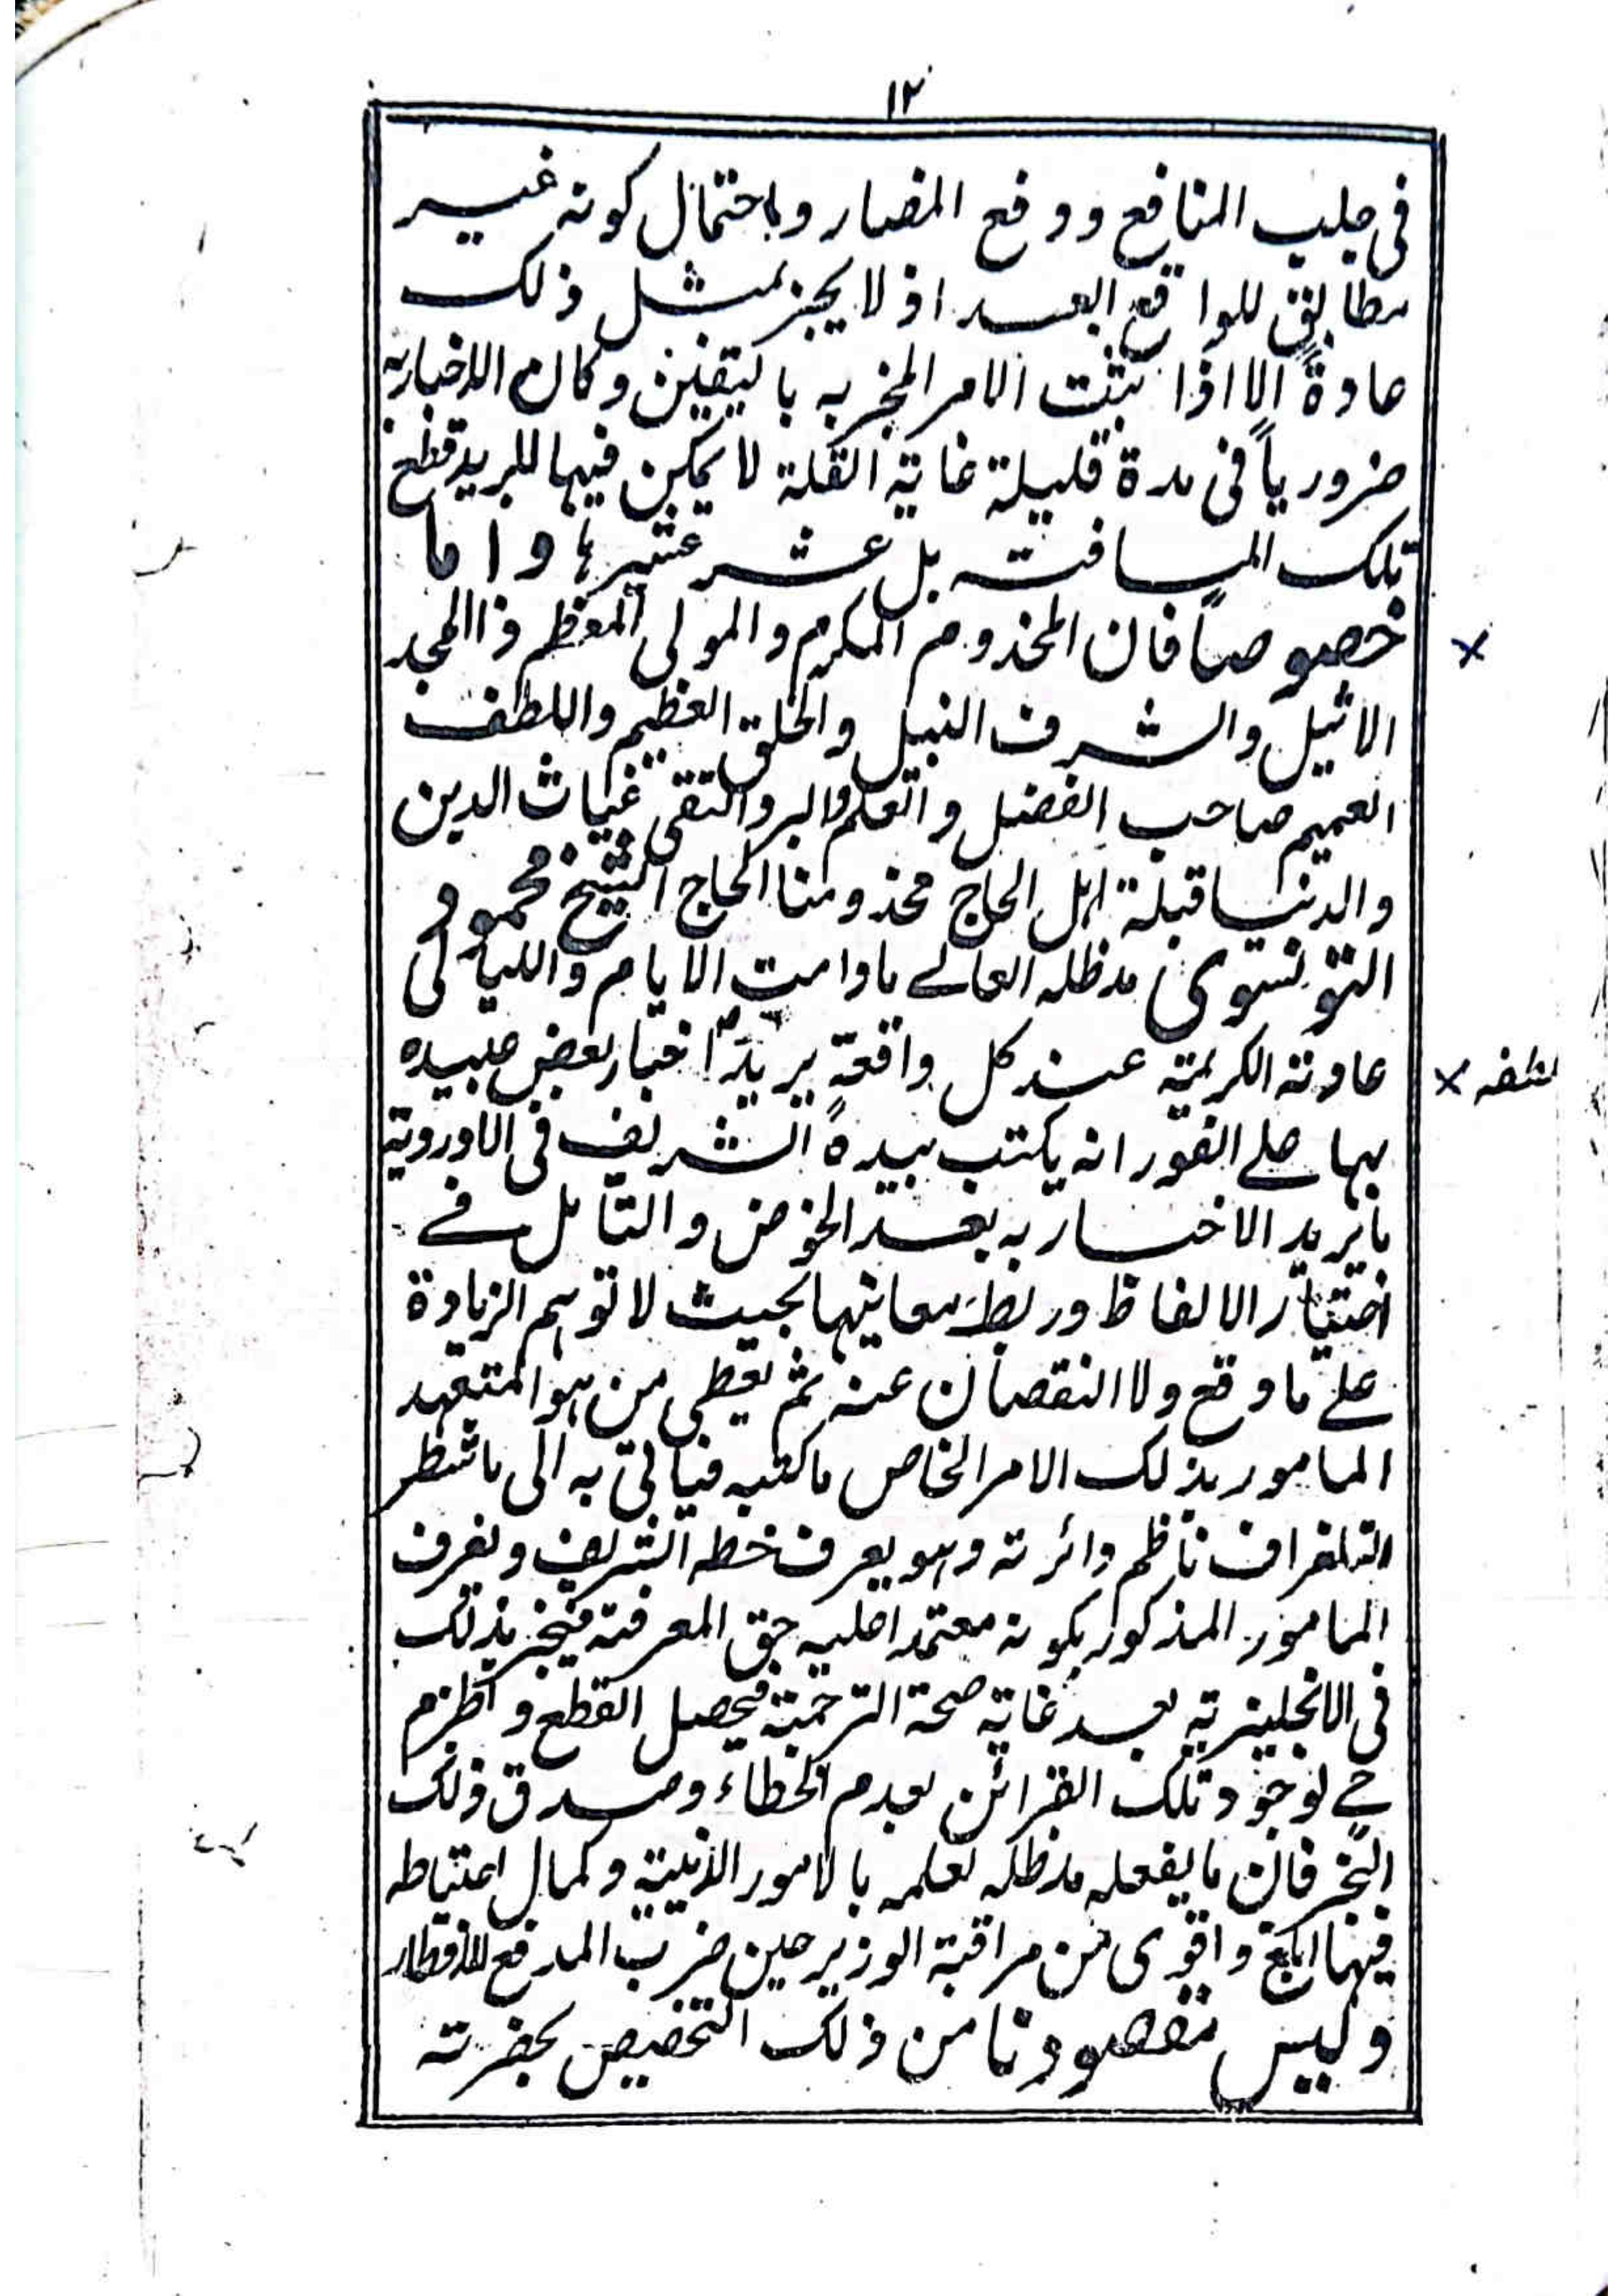 ١٢
فى جلب المنافع ودفع المضار وباحتمال كونه غير
مطابق للواقع ابعد اذ لا يخبر بمثل ذلك
عادةً الا اذا تثبت الامر المخبر به باليقين وكان الاخبار به
ضرورياً فى مدة قليلة غاية القلة لا يمكن فيها للبريد قطع
تلك المسافت بل عشر عشيرها واما
خصوصاً فان المخدوم المكرم والمولى المعظم ذا المجد
الاثيل والشرف النبيل والخلق العظيم واللطف
العميم صاحب الفضل والعلم والبر والتقى غياث الدين
والدنيا قبلة اهل الحاج مخدومنا الحاج الشيخ محمود
مدظله العالے مادامت الايام والليالى
عادته الكريمة عند كل واقعة يريد اخبار بعض عبيده
بها على الفور انه يكتب بيده الشريف فى الاوروية
ما يريد الاخبار به بعد الخوض والتامل فے
اختيار الالفاظ وربط معانيها بحيث لا توهم الزيادة
علے ما وقع ولا النقصان عنه ثم يعطى من هو المتعهد
المامور بذلك الامر الخاص ما كتبه فياتى به الى ماشطر
التلغراف ناظم دائرته وهو يعرف خطه الشريف ويعرف
المامور المذكور بكونه معتمدا عليه حق المعرفة فيخبر بذلك
فى الانجليزية بعد غاية صحة الترجمة فيحصل القطع و
ح لوجود تلك القرائن بعدم الخطاء وصدق ذلك
الخبر فان ما يفعله مدظله لعلمه بالامور الدينية وكمال احتياطه
فيها ابلغ واقوى من مراقبة الوزير حين ضرب المدفع للافطار
وليس مقصودنا من ذلك التخصيص بحضرته